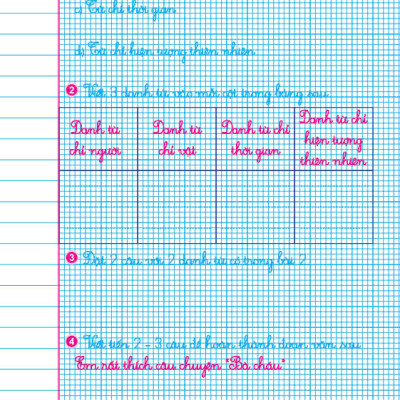 c) Từ chỉ thời gian
d) Từ chỉ hiện tượng thiên nhiên
2 Viết 3 danh từ vào mỗi cột trong bảng sau
Danh từ chỉ người
Danh từ chỉ vật
Danh từ chỉ thời gian
Danh từ chỉ hiện tượng thiên nhiên
3 Đặt 2 câu với 2 danh từ có trong bài 2
4 Viết tiếp 2 - 3 câu để hoàn thành đoạn văn sau
Em rất thích câu chuyện "Bà cháu"